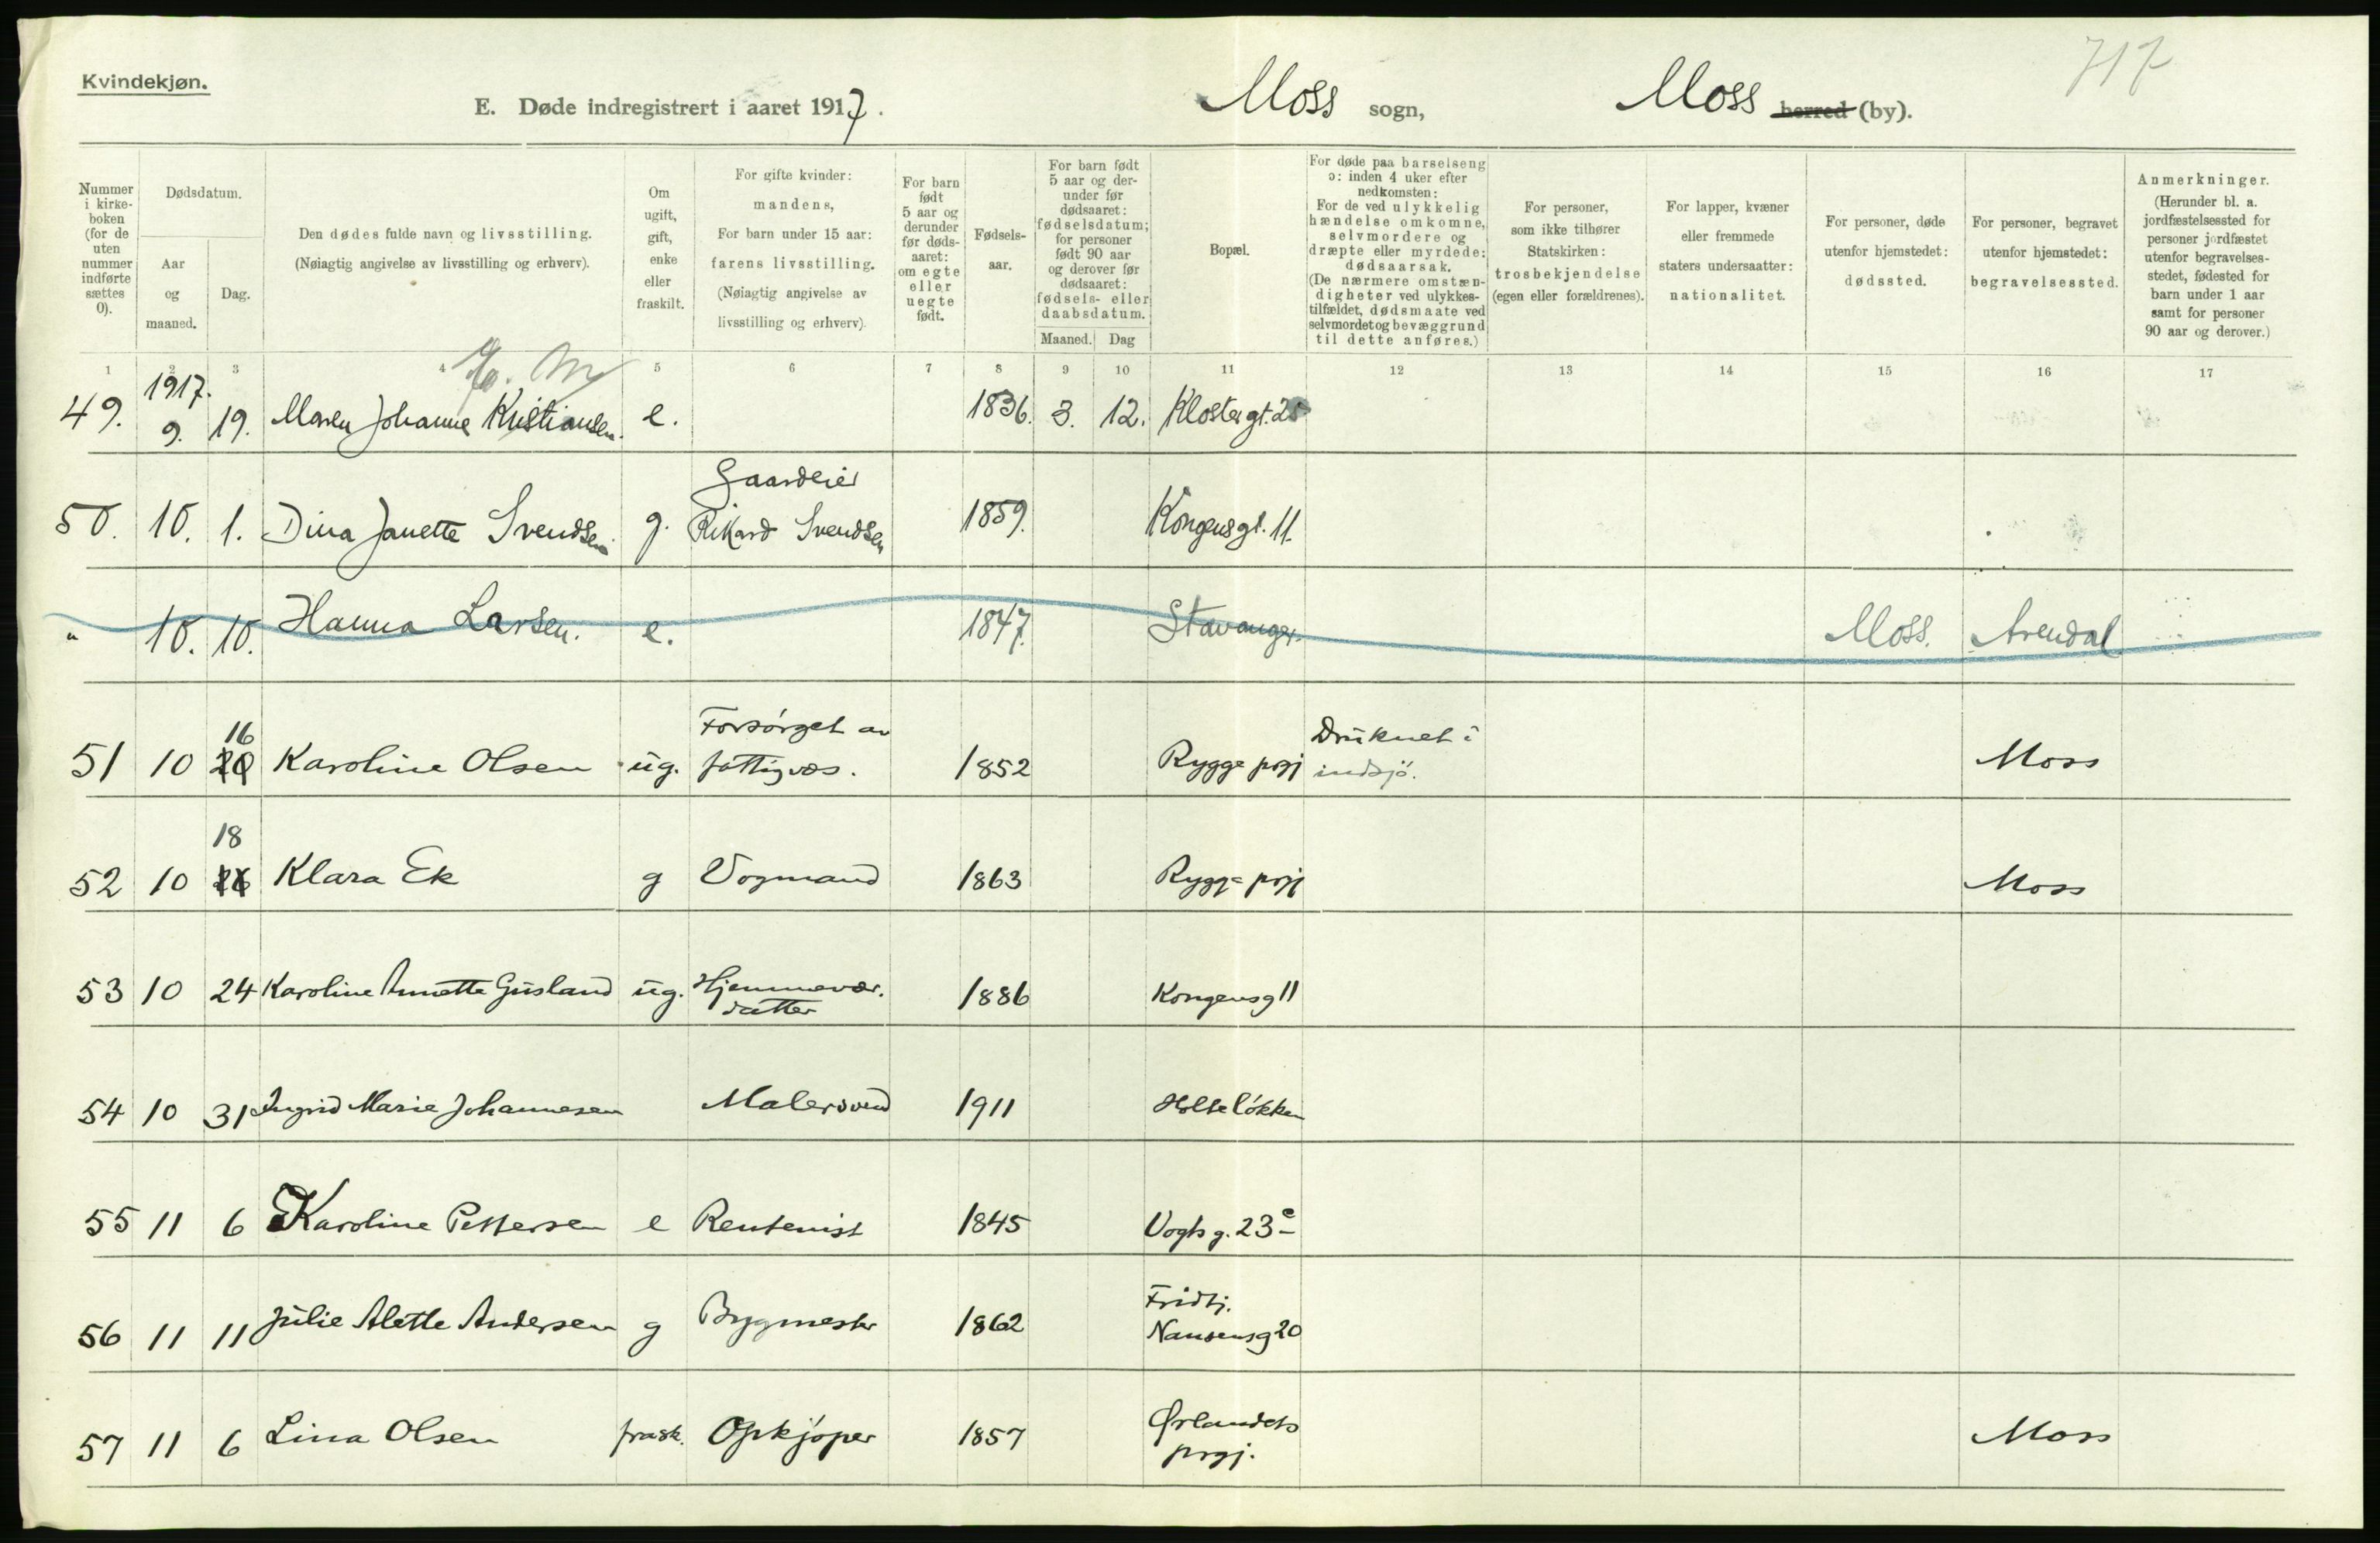 Kvindekjøn.
717
E. Døde indregistrert i aaret 1917.
Moss sogn,
Moss herred (by).
Nummer i kirke-boken (for de uten nummer indførte sættes 0).
Dødsdatum.
Aar og maaned.
Dag.
Den dødes fulde navn og livsstilling.
(Nøiagtig angivelse av livsstilling og erhverv).
Om ugift, gift, enke eller fraskilt.
For gifte kvinder: mandens, For barn under 15 aar: farens livsstilling. (Nøiagtig angivelse av livsstilling og erhverv).
For barn født 5 aar og derunder før døds-aaret: om egte eller uegte født.
Fødsels-aar.
For barn født 5 aar og der-under før dødsaaret: fødselsdatum; for personer født 90 aar og derover før dødsaaret: fødsels- eller daabsdatum.
Maaned. Dag
Bopæl.
For døde paa barselseng ɔ: inden 4 uker efter nedkomsten: For de ved ulykkelig hændelse omkomne, selvmordere og dræpte eller myrdede: dødsaarsak. (De nærmere omstæn-digheter ved ulykkes-tilfældet, dødsmaate ved selvmordet og bevæggrund til dette anføres.)
For personer, som ikke tilhører Statskirken: trosbekjendelse (egen eller forældrenes).
For lapper, kvæner eller fremmede staters undersaatter: nationalitet.
For personer, døde utenfor hjemstedet: dødssted.
For personer, begravet utenfor hjemstedet: begravelsessted.
Anmerkninger. (Herunder bl. a. jordfæstelsessted for personer jordfæstet utenfor begravelses-stedet, fødested for barn under 1 aar samt for personer 90 aar og derover.)
1 2 3 4 5 6 7 8 9 10 11 12 13 14 15 16 17
1917.
49. 9. 19. Maren Johanne Kristiansen. e. 1836. 3. 12. Klostergt. 25
Gaardeier
50. 10. 1. Dina Janette Svendsen g. Rikard Svendsen 1859. Kongensgt. 11.
" 10. 10. Hanna Larsen. e. 1847. Stavanger. Moss. Arendal
16 Forsörget av Druknet i
51 10 20 Karoline Olsen ug. fattigvæs. 1852 Rygge prgj indsjö. Moss
18
52 10 Klara Ek g Vognmand 1863 Rygge prgj Moss
53 10 24 Karoline Annette Gusland ug. Hjemmevær. datter 1886 Kongensg 11
54 10 31 Ingrid Marie Johannesen Malersvend 1911 Holteløkken
55 11 6 Karoline Pettersen e Rentenist 1845 Vogts g. 23 c
Fridtj.
56 11 11 Julie Alette Andersen g Bygmester 1862 Nansensg 20
57 11 6 Lina Olsen frask. Opkjøper 1857 Ørlandets prgj. Moss